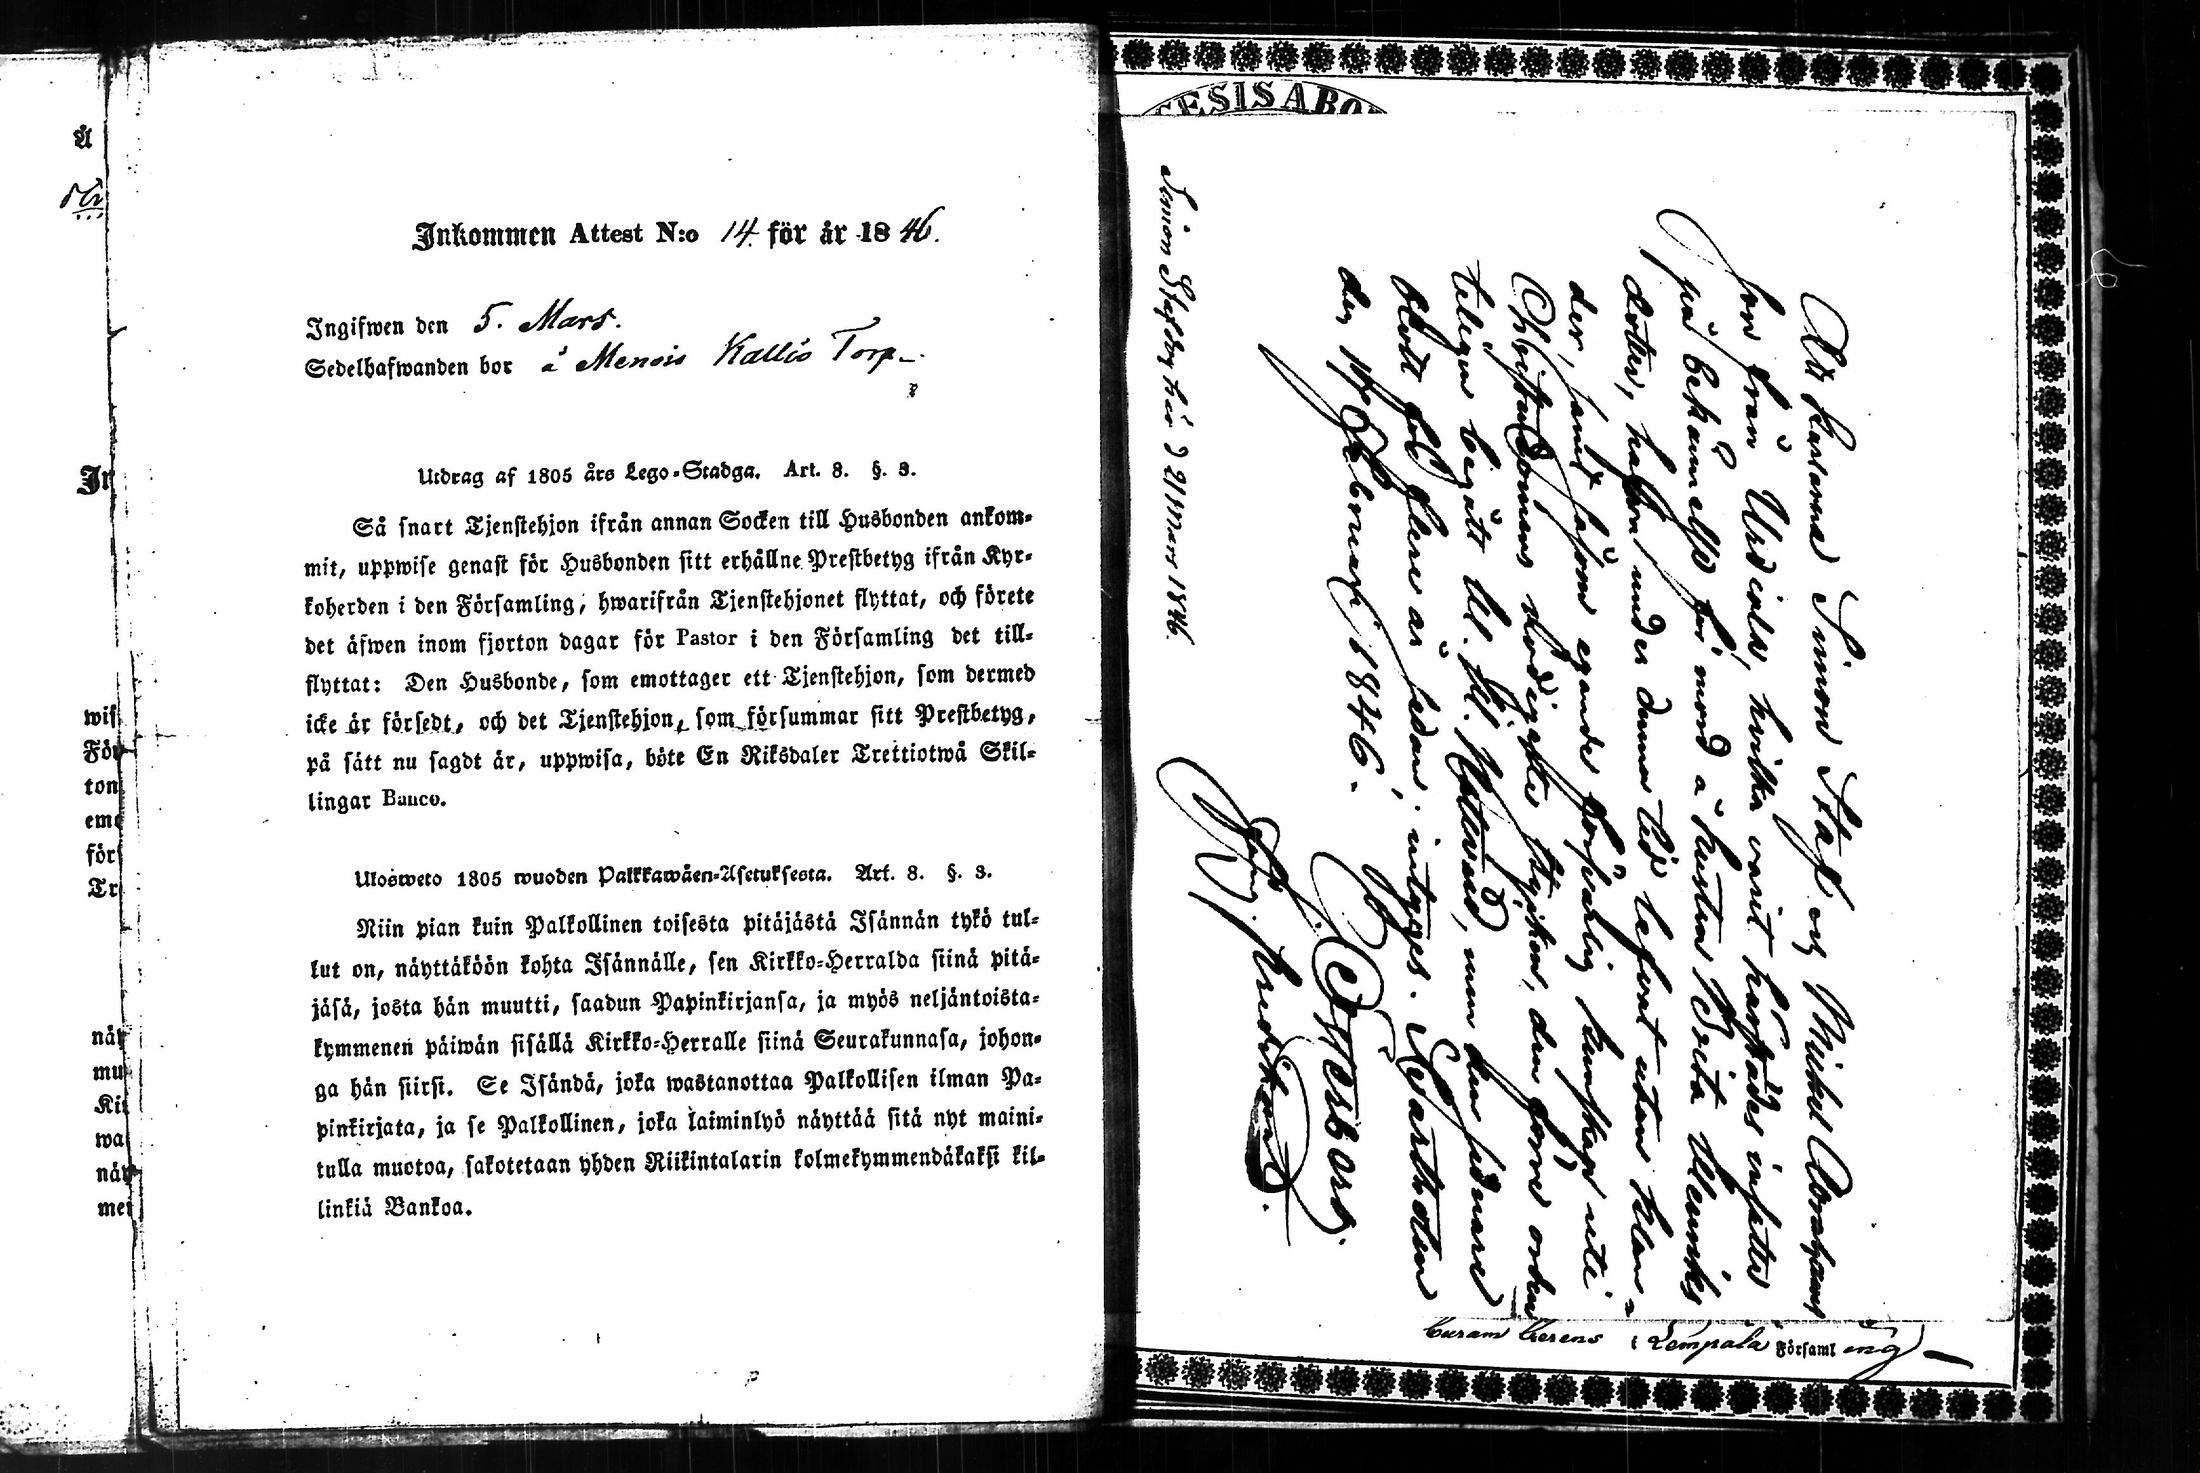 Å
In
wis
För
ton
eme
förs
Tr
näy
mu
Kir
wa
näy
mer
Inkommen Attest N:o 14. för år 1846.
Ingifwen den 5. Mars.
Sedelhafwanden bor å Menois Kallio Torp.
Utdrag af 1805 års Lego-Stadga. Art. 8. §. 3.
Så snart Tjenstehjon ifrån annan Socken till Husbonden ankom-
mit, uppwise genast för Husbonden sitt erhållne Prestbetyg ifrån Kyr-
koherden i den Församling, hwarifrån Tjenstehjonet flyttat, och förete
det äfwen inom fjorton dagar för Pastor i den Församling det till-
flyttat: Den Husbonde, som emottager ett Tjenstehjon, som dermed
icke är försedt, och det Tjenstehjon, som försummar sitt Prestbetyg,
på sätt nu sagdt är, uppwisa, böte En Riksdaler Trettiotwå Skil-
lingar Banco.
Ulosweto 1805 wuoden Palkkawäen-Asetuksesta. Art. 8. §. 3.
Niin pian kuin Palkollinen toisesta pitäjästä Isännän tykö tul-
lut on, näyttäköön kohta Isännälle, sen Kirkko-Herralda siinä pitä-
jäsä, josta hän muutti, saadun Papinkirjansa, ja myös neljäntoista-
kymmenen päiwän sisällä Kirkko-Herralle siinä Seurakunnasa, johon-
ga hän siirsi. Se Isändä, joka wastanottaa Palkollisen ilman Pa-
pinkirjata, ja se Palkollinen, joka laiminlyö näyttää sitä nyt maini-
tulla muotoa, sakotetaan yhden Riikintalarin kolmekymmendäkaksi kil-
linkiä Bankoa.
ESIS ABO
Att karlarne Simon Staf och Mikel Abrahams
son från Urdiala, hvilka varit härstädes insatte
på bekännelse för mord å hustru Brita Hemriks
dotter, hafva under denna tid lefvat utan klan-
der, samt såsom egande försvarlig kunskap uti
Christendomens nödigaste stycken, den förre orden
teligen begått H. H. Nattvard, men den sednare
blott för flere år sedan; intygas. Kartholm
den 17 Februari 1846.
C. G. Westbork.
Fredrikson.
Simon Staf dog här d 21 Mars 1846.
Curam Gerens i Lempälä Församling